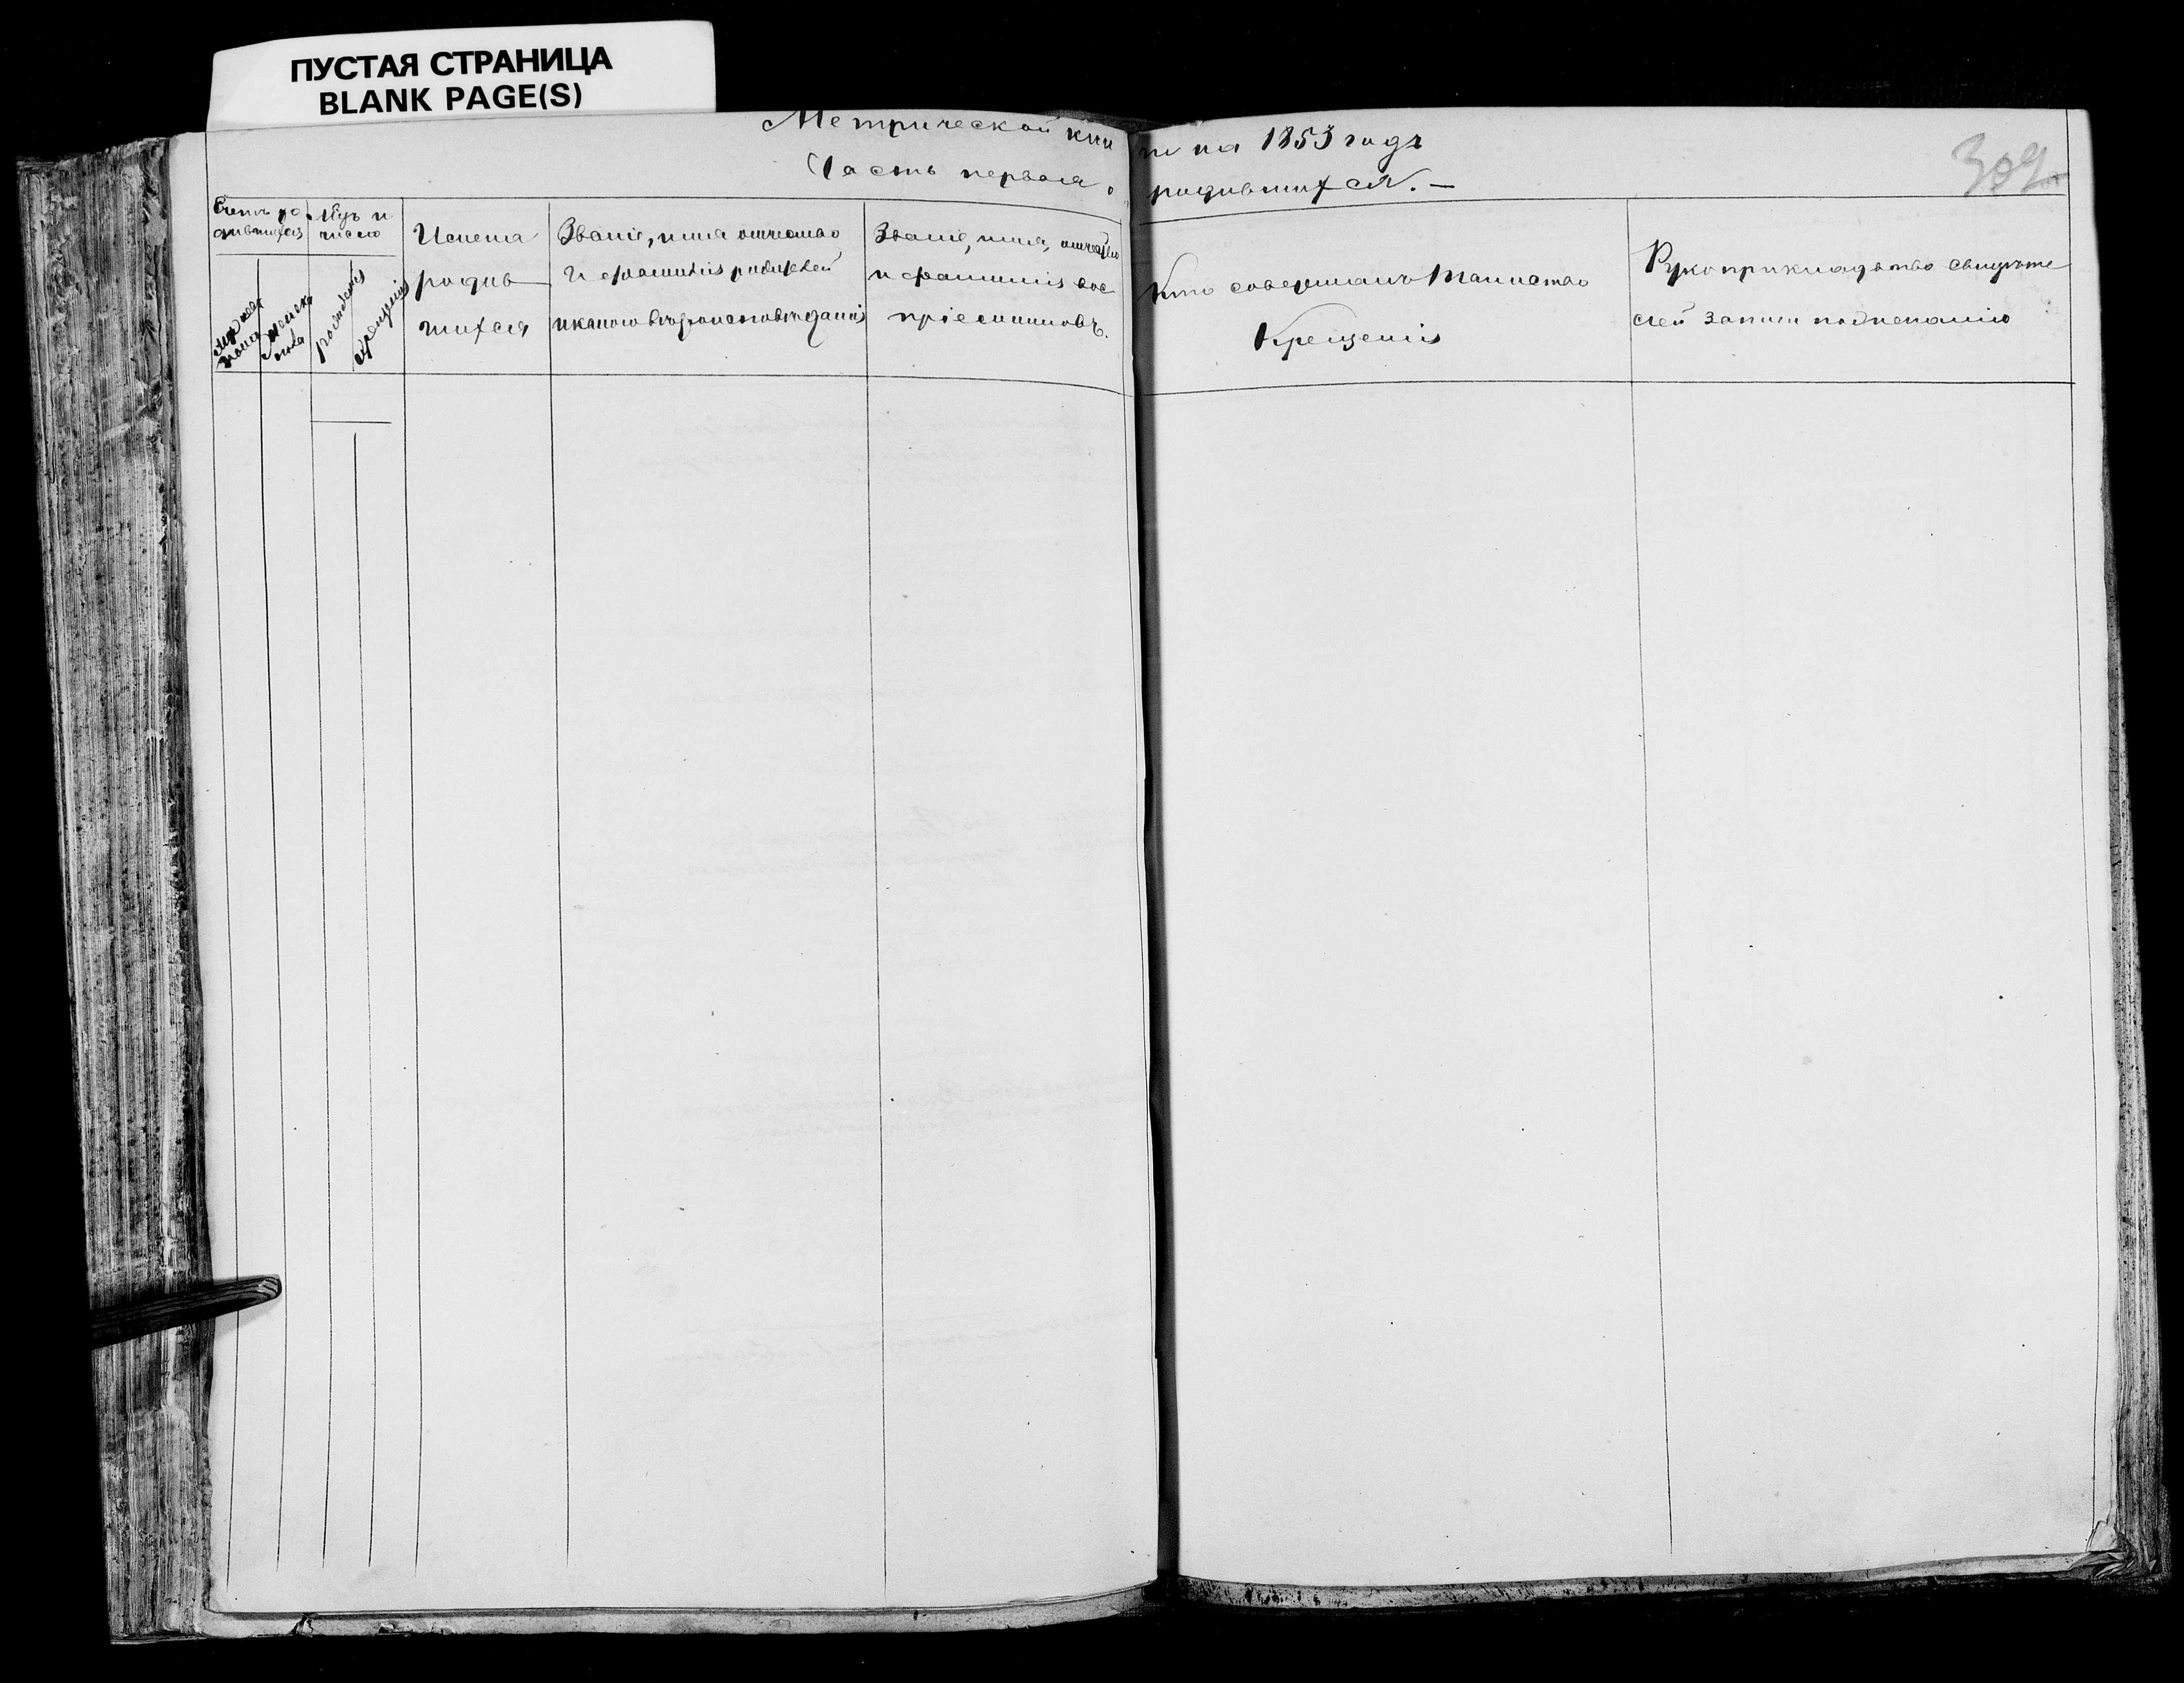 ПУСТАЯ СТРАНИЦА
BLANK PAGE(S)
Метрической книги на 1853 годъ
Часть первая, о родившихся. —
309
Счетъ родившихся
Мужеска пола
Женска пола
Мѣсяцъ и число
рожденія
крещенія
Имена
родив
шихся
Званіе, имя отчество
и фамилія родителей
и какого вѣроисповѣданія
Званіе, имя, отчество
и фамилія вос
пріемниковъ.
Кто совершалъ таинство
Крещенія
Рукоприкладство свидѣте
лей записи по желанію